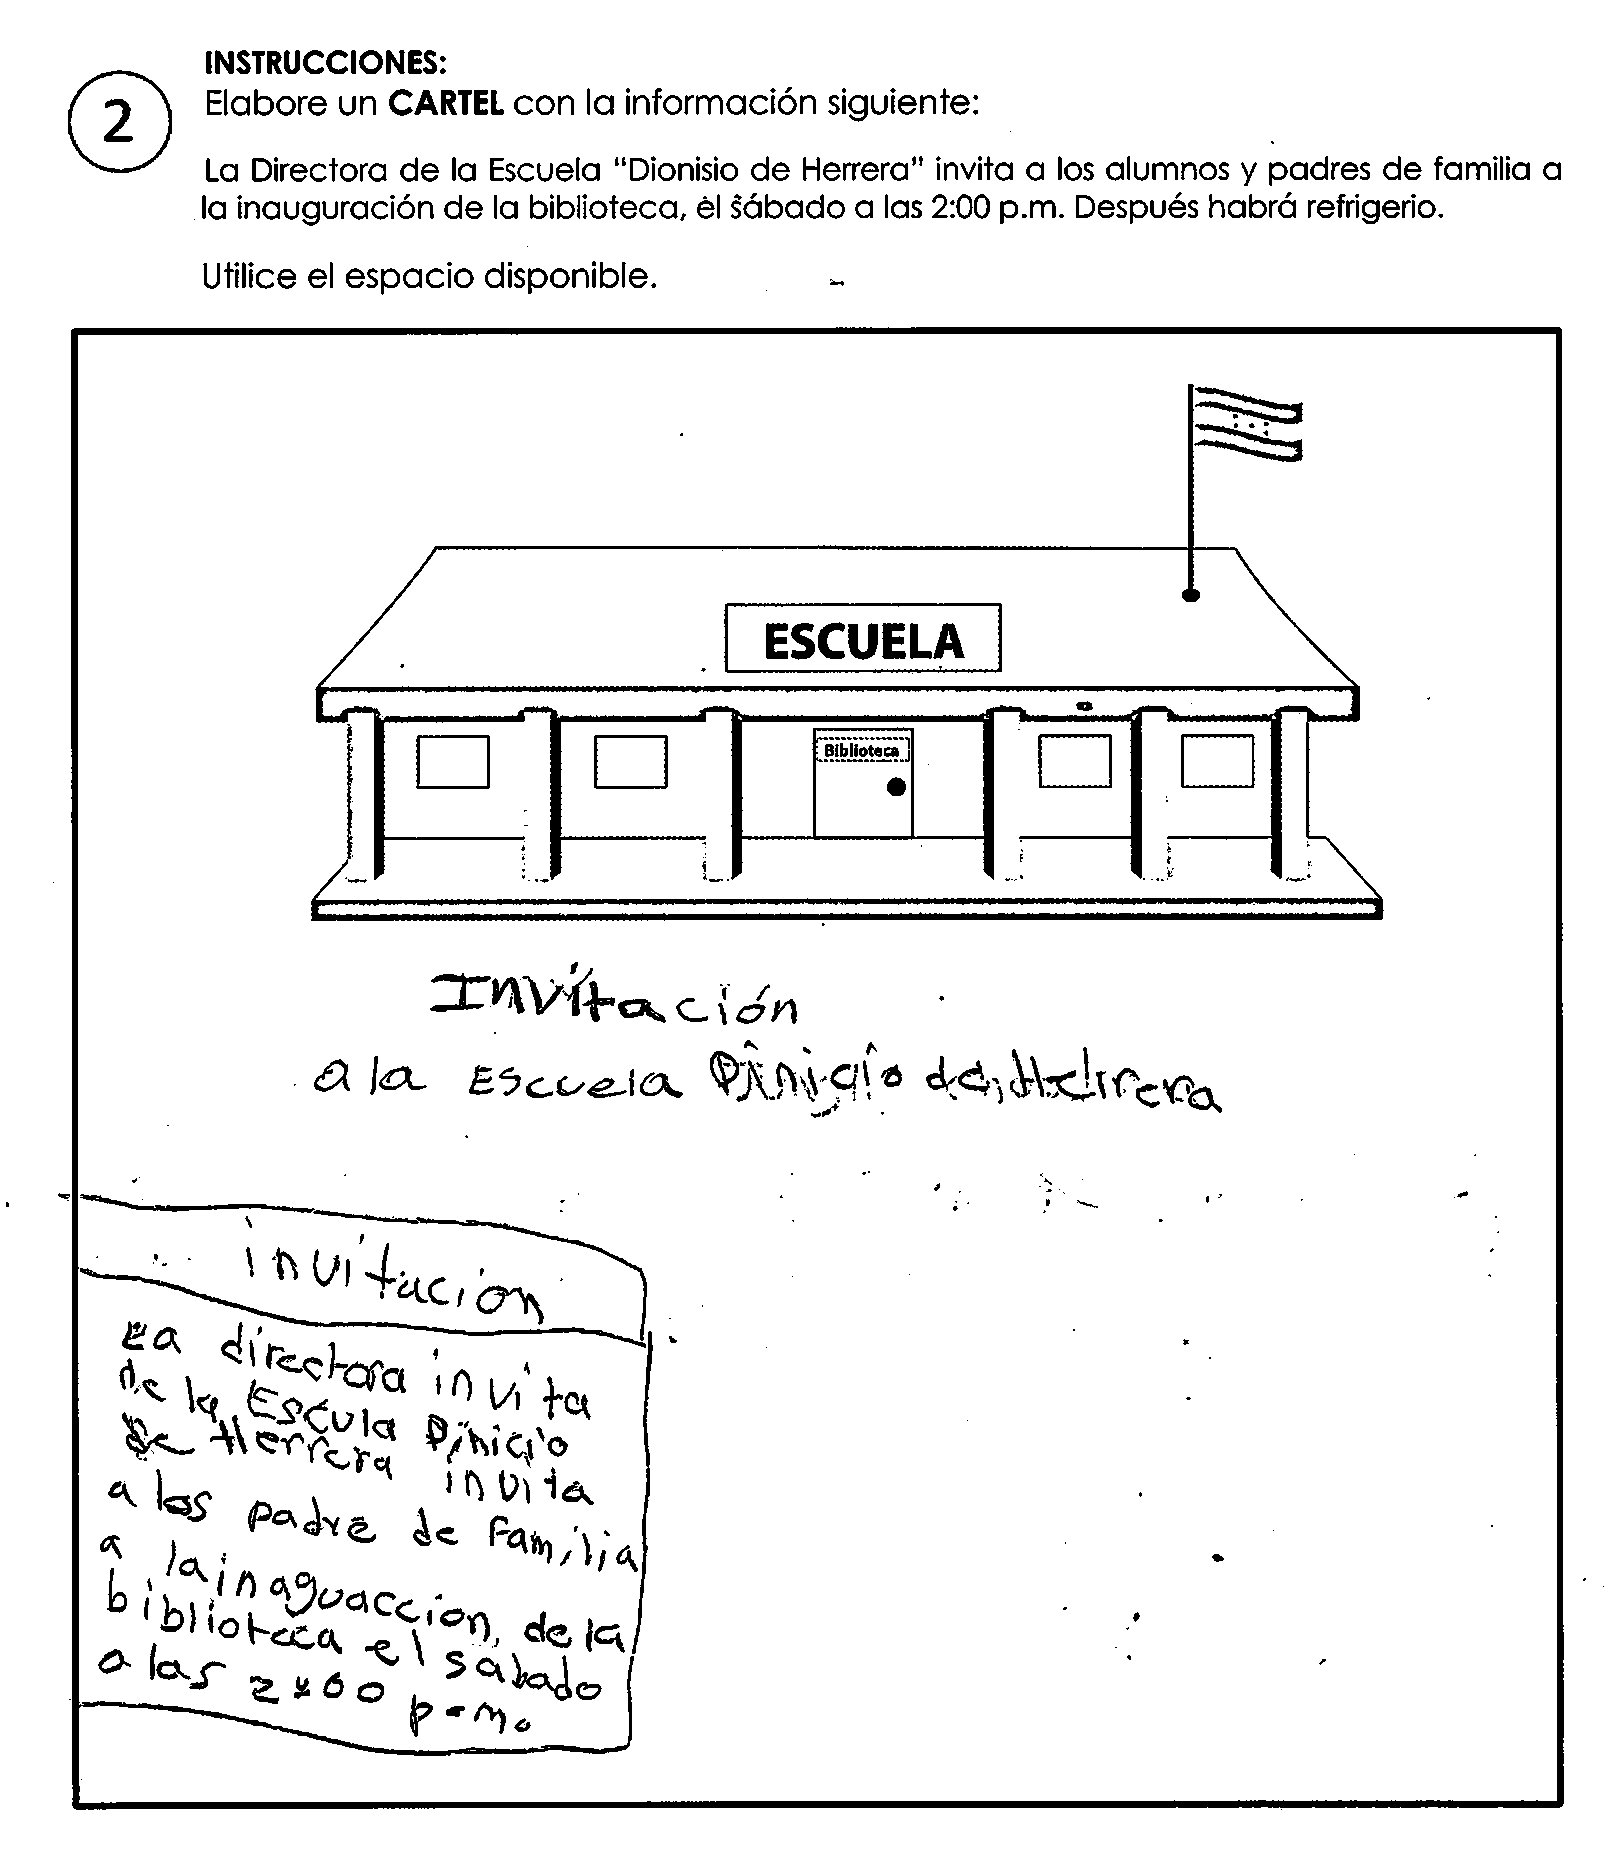 INSTRUCCIONES:
2
Elabore un CARTEL con la información siguiente:
La Directora de la Escuela "Dionisio de Herrera" invita a los alumnos y padres de familia a
la inauguración de la biblioteca, el sábado a las 2:00 p.m. Después habrá refrigerio.
Utilice el espacio disponible.
ESCUELA
Biblioteca
Invitación
a la Escuela Dinicio de Herrera
invitacion
La directora invita
de la Escula Dinicio
de Herrera invita
a los padre de familia
a la inaguaccion de la
biblioteca el sabado
a las 2:00 p.m.